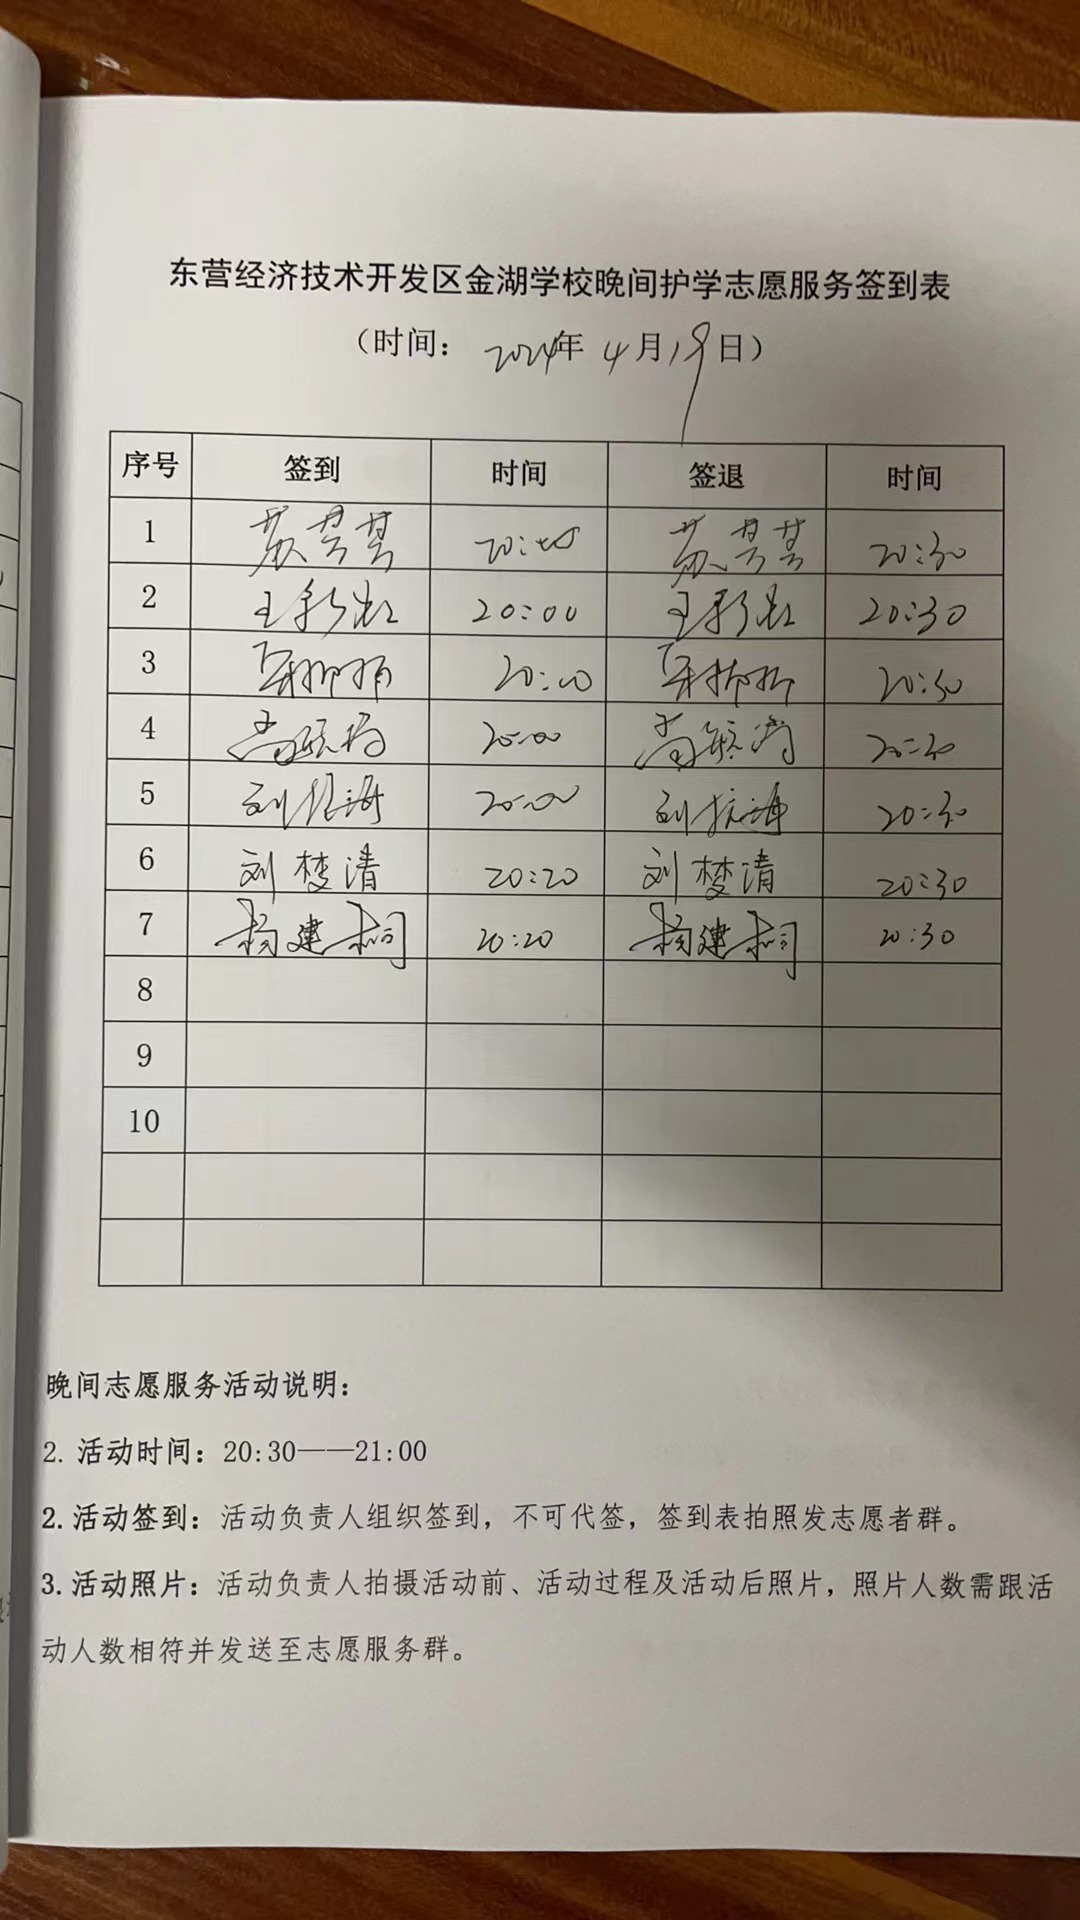 东营经济技术开发区金湖学校晚间护学志愿服务签到表
（时间： 2024年 4月19日）
序号 签到 时间 签退 时间
1 20:30
2 王彩虹 20:00 王彩虹 20:30
3 20:00 20:30
4 20:00 20:30
5 20:00 20:30
6 刘梦清 20:20 刘梦清 20:30
7 杨建桐 20:20 杨建桐 20:30
8
9
10
晚间志愿服务活动说明：
2. 活动时间：20:30——21:00
2.活动签到：活动负责人组织签到，不可代签，签到表拍照发志愿者群。
3.活动照片：活动负责人拍摄活动前、活动过程及活动后照片，照片人数需跟活
动人数相符并发送至志愿服务群。